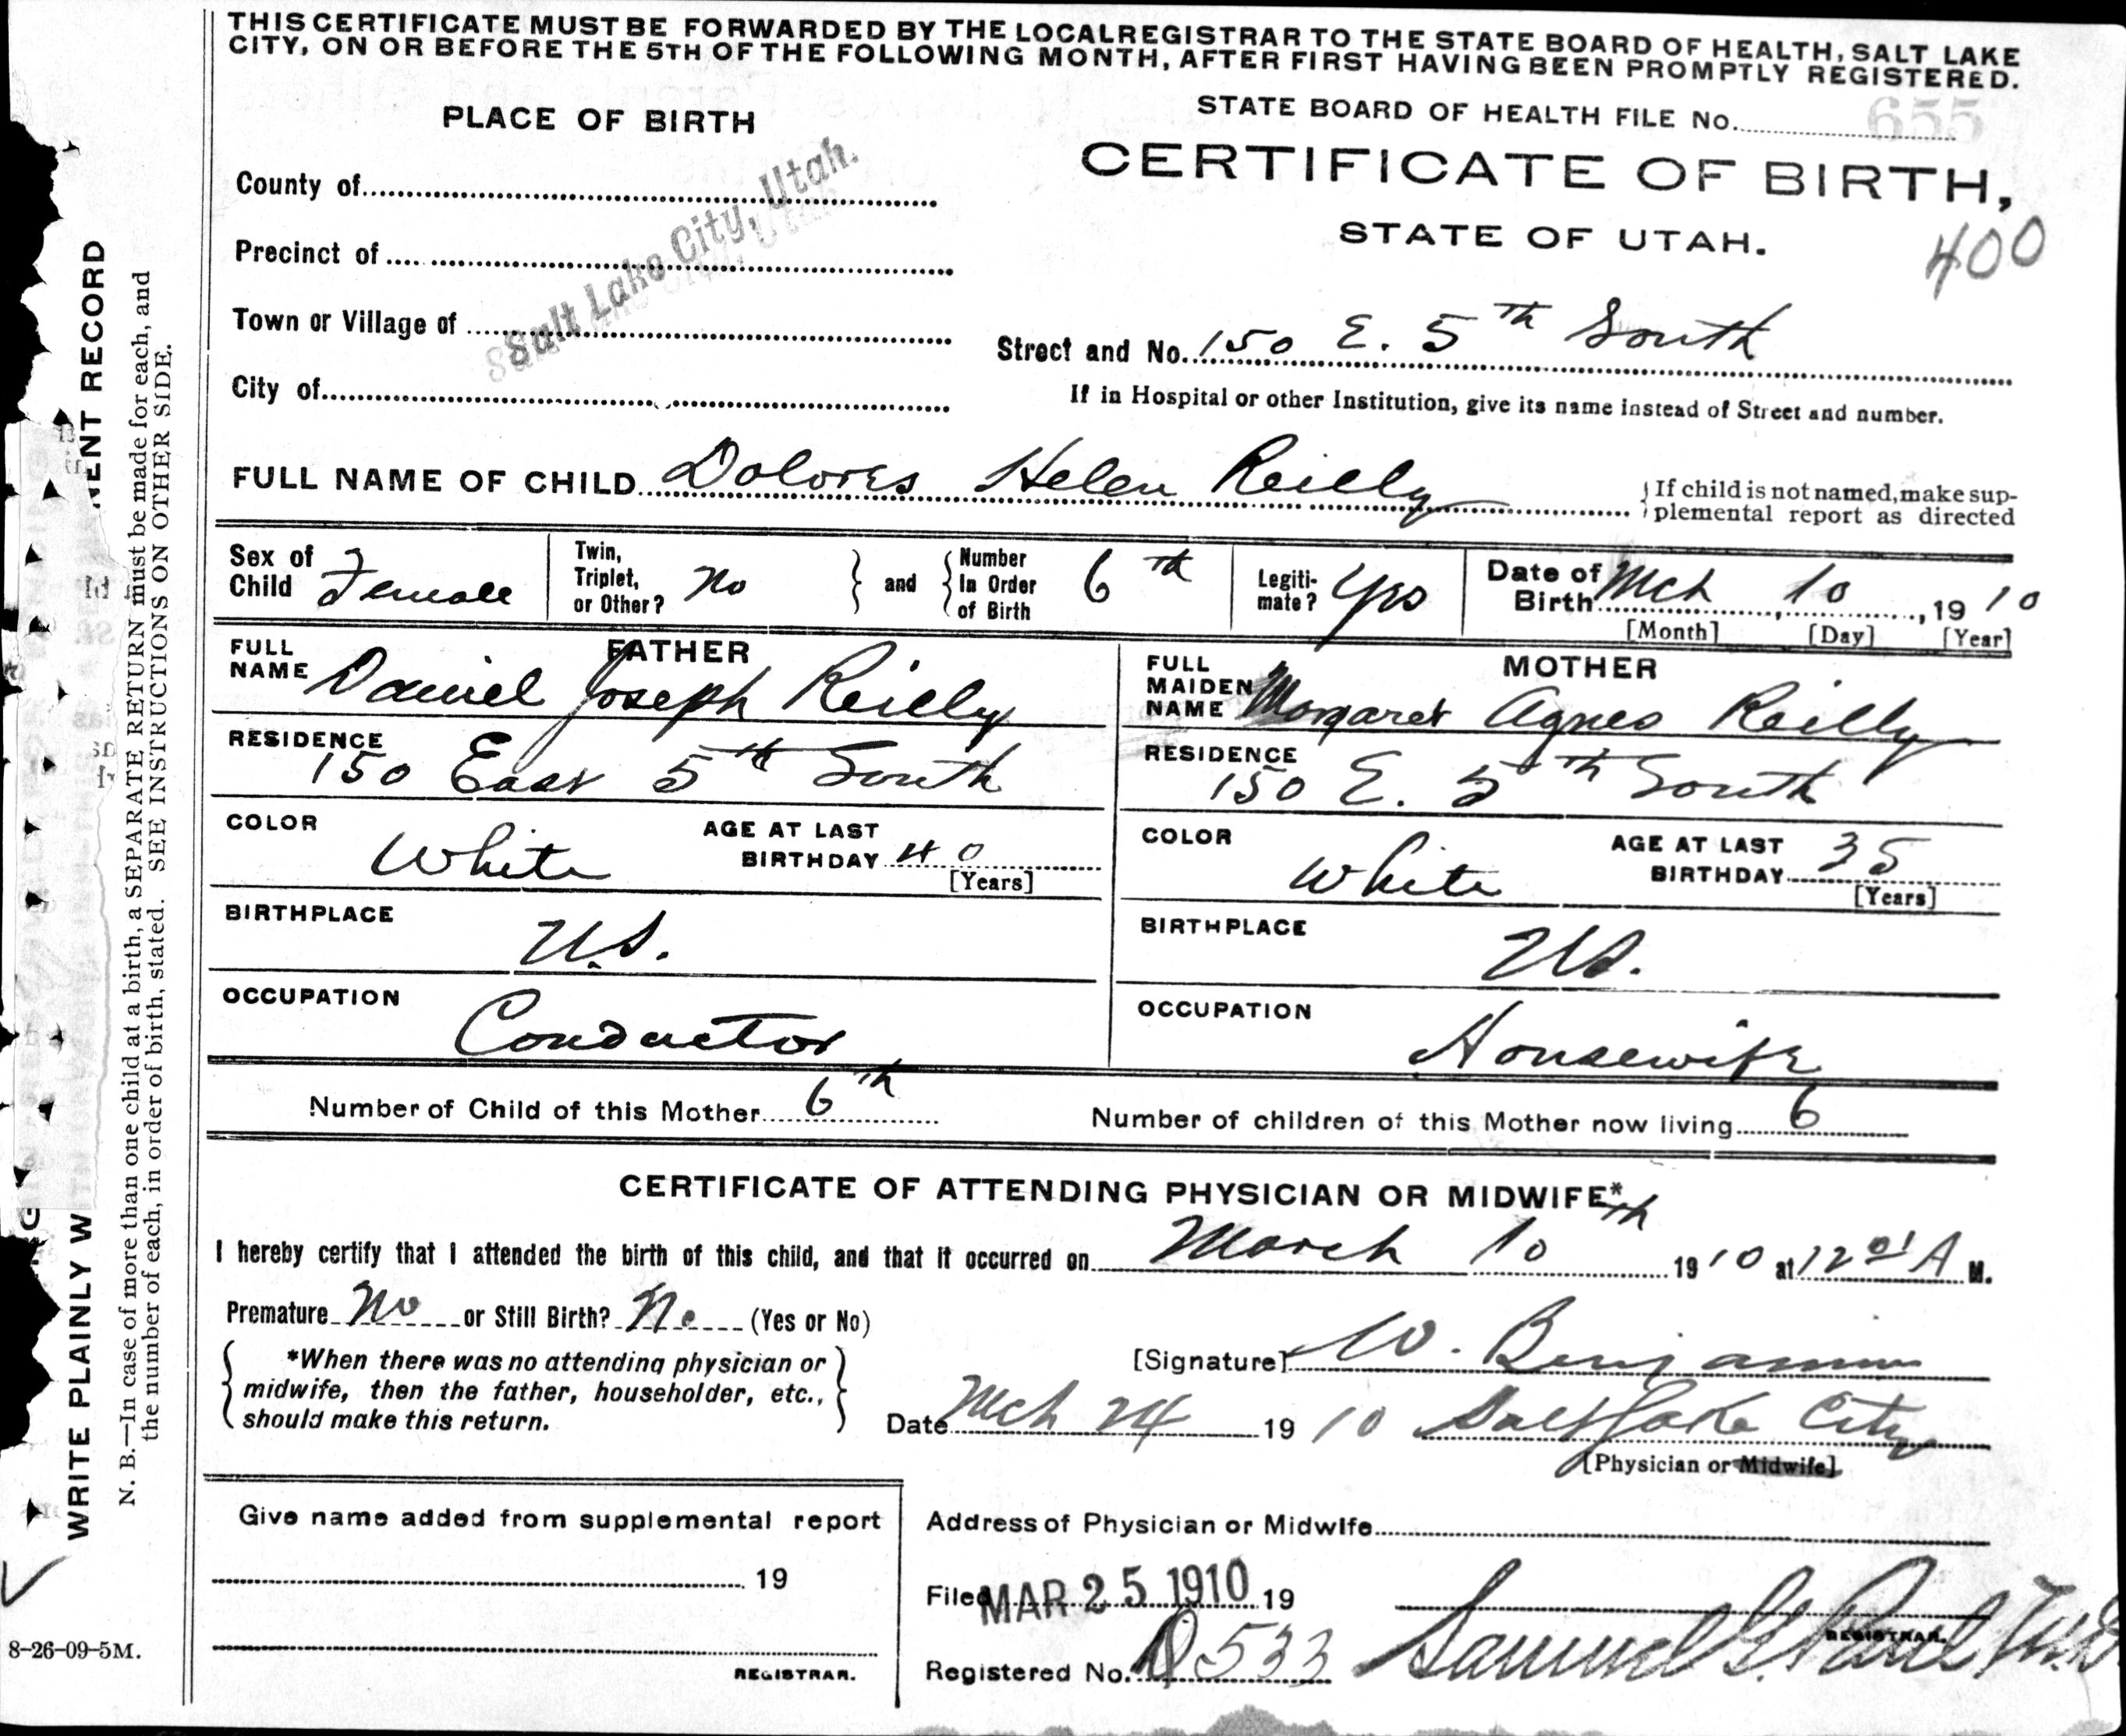 THIS CERTIFICATE MUST BE FORWARDED BY THE LOCAL REGISTRAR TO THE STATE BOARD OF HEALTH, SALT LAKE
CITY, ON OR BEFORE THE 5TH OF THE FOLLOWING MONTH, AFTER FIRST HAVING BEEN PROMPTLY REGISTERED.
PLACE OF BIRTH
STATE BOARD OF HEALTH FILE No. 655
CERTIFICATE OF BIRTH,
STATE OF UTAH.
400
County of
Precinct of
Town or Village of
City of
Salt Lake City, Utah.
Street and No. 150 E. 5th South
If in Hospital or other Institution, give its name instead of Street and number.
FULL NAME OF CHILD Dolores Helen Reilly
If child is not named, make sup-
plemental report as directed
Sex of Child Female
Twin, Triplet, or Other? No
and
Number In Order of Birth 6th
Legiti-mate? Yes
Date of Birth Mch 10, 1910
[Month] [Day] [Year]
FATHER
FULL NAME Daniel Joseph Reilly
RESIDENCE 150 East 5th South
COLOR White
AGE AT LAST BIRTHDAY 40 [Years]
BIRTHPLACE U.S.
OCCUPATION Conductor
MOTHER
FULL MAIDEN NAME Margaret Agnes Reilly
RESIDENCE 150 E. 5th South
COLOR White
AGE AT LAST BIRTHDAY 35 [Years]
BIRTHPLACE U.S.
OCCUPATION Housewife
Number of Child of this Mother 6th
Number of children of this Mother now living 6
CERTIFICATE OF ATTENDING PHYSICIAN OR MIDWIFE*
I hereby certify that I attended the birth of this child, and that it occurred on March 10th 1910 at 12 01 A M.
Premature No or Still Birth? No (Yes or No)
*When there was no attending physician or
midwife, then the father, householder, etc.,
should make this return.
[Signature] W. Benjamin
Date Mch 24 1910 Salt Lake City
[Physician or Midwife]
Give name added from supplemental report
19
REGISTRAR.
Address of Physician or Midwife
Filed MAR 25 1910 19
Registered No. 533
Samuel G. Paul M.D.
REGISTRAR.
WRITE PLAINLY W
ENT RECORD
N. B.—In case of more than one child at a birth, a SEPARATE RETURN must be made for each, and
the number of each, in order of birth, stated. SEE INSTRUCTIONS ON OTHER SIDE.
8-26-09-5M.